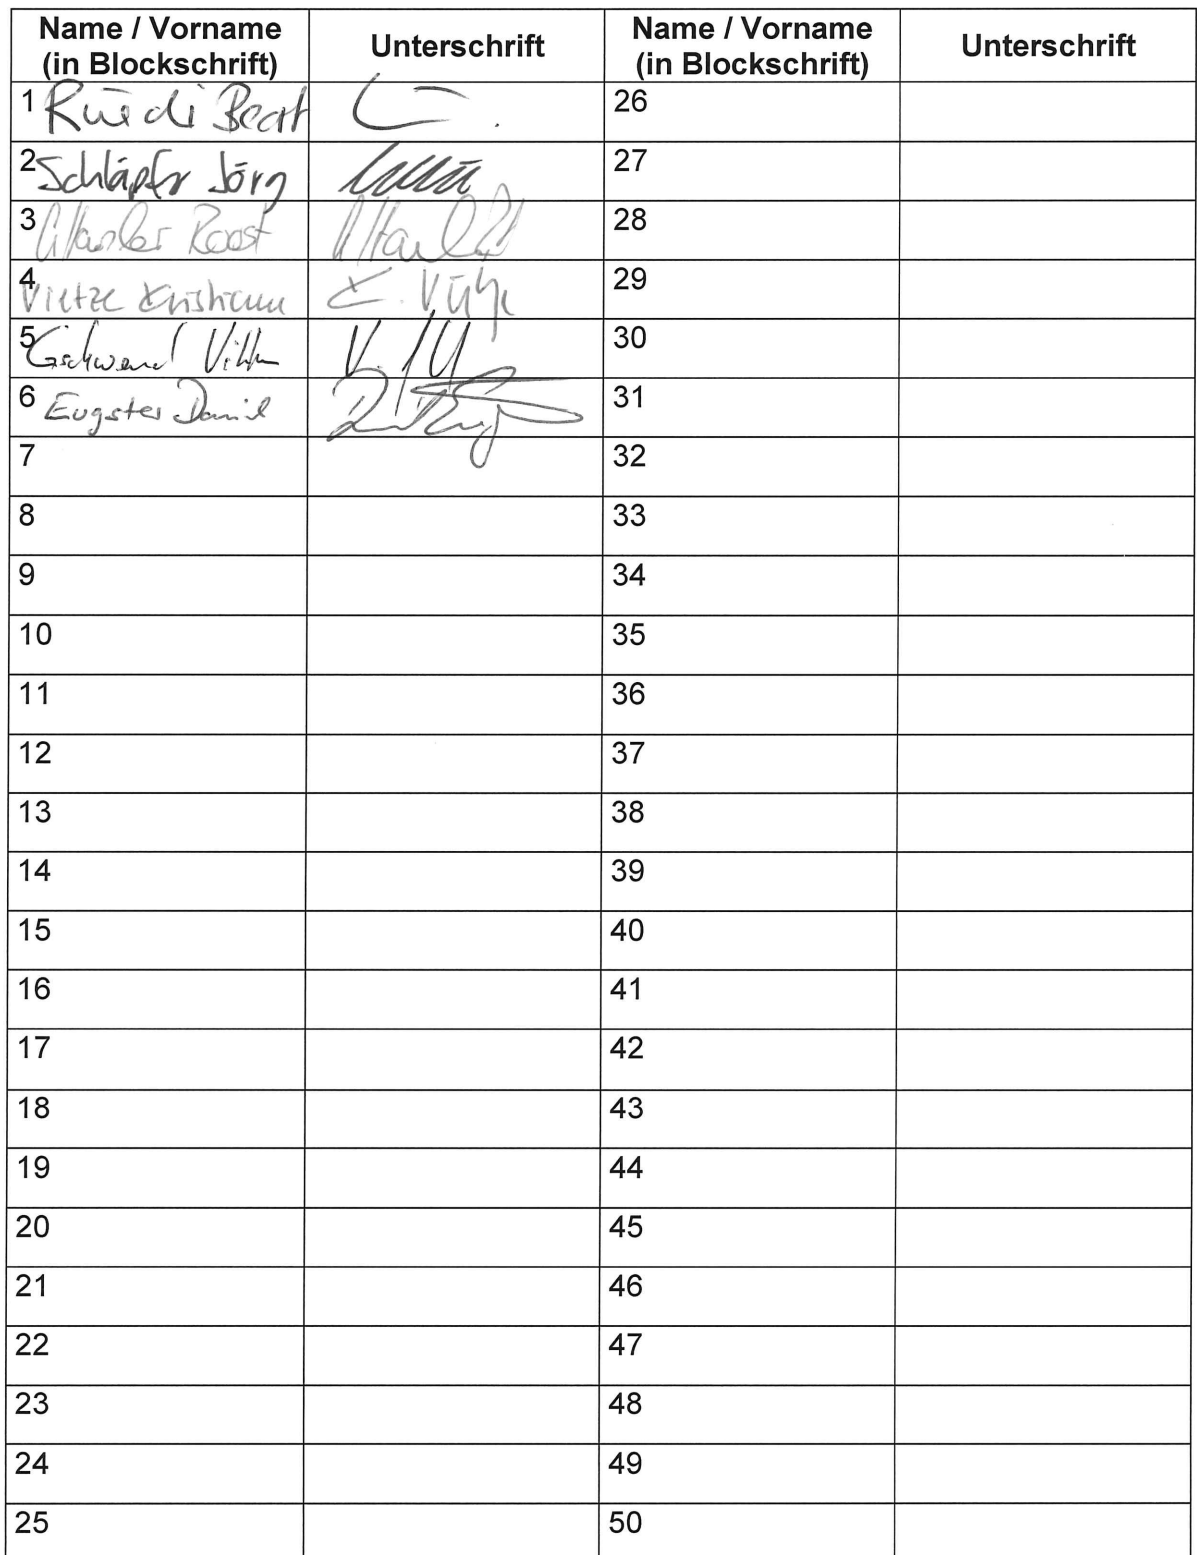 Name / Vorname (in Blockschrift) Unterschrift Name / Vorname (in Blockschrift) Unterschrift
1 Rüedi Beat 26
2 Schläpfer Jörg 27
3 Roost 28
4 Vietze 29
5 Gschwend 30
6 Eugster Daniel 31
7 32
8 33
9 34
10 35
11 36
12 37
13 38
14 39
15 40
16 41
17 42
18 43
19 44
20 45
21 46
22 47
23 48
24 49
25 50